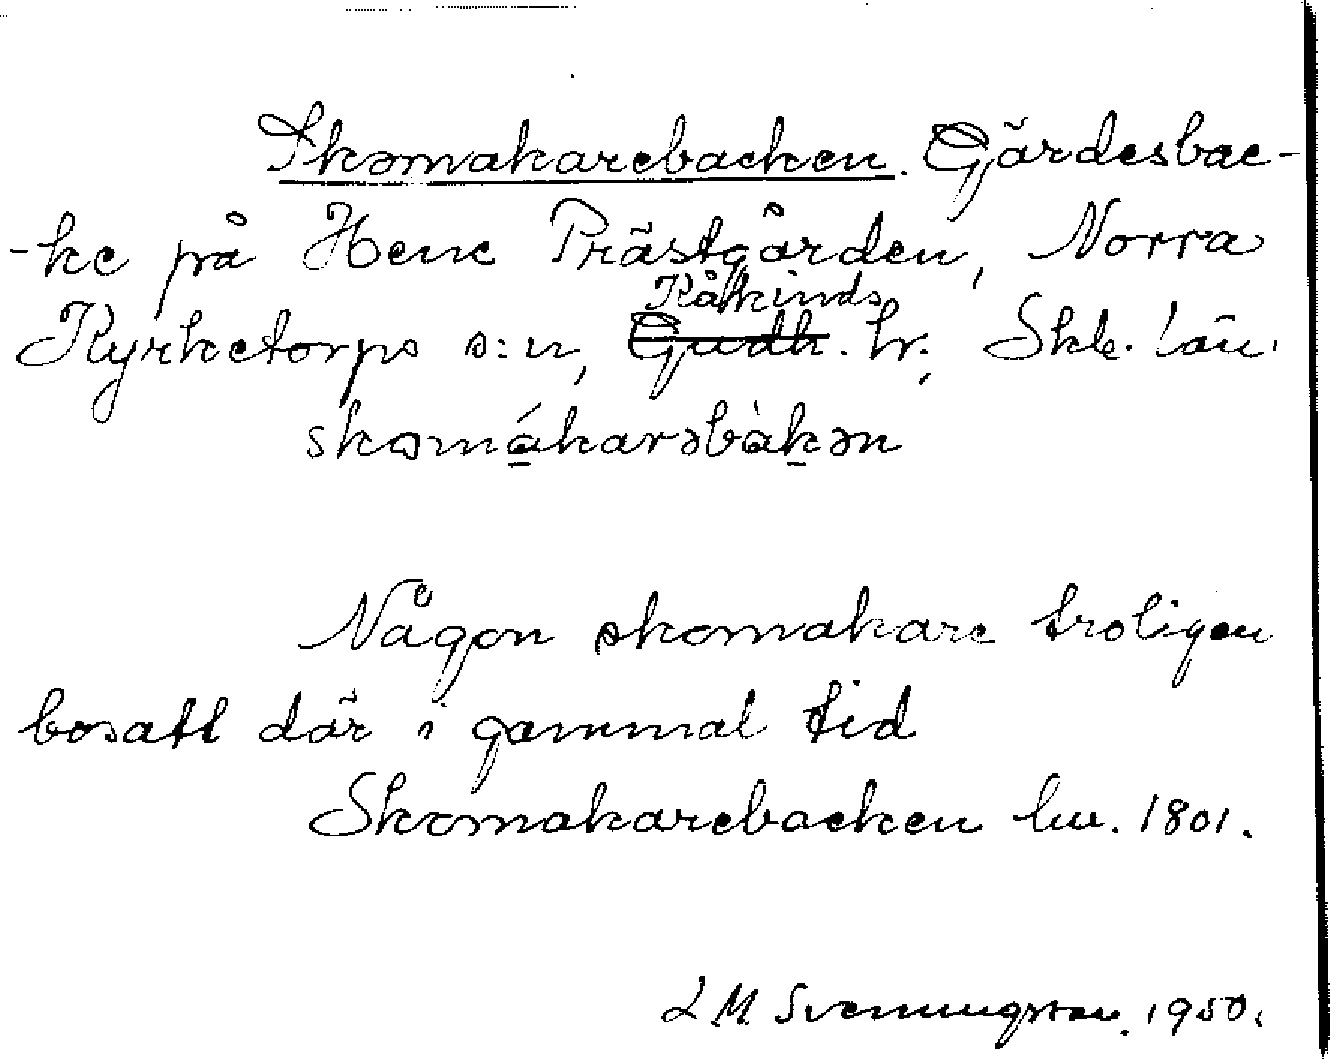 Skomakarebacken. Gärdesbac-
-ke på Hene Prästgården, Norra
Kåkinds
Kyrketorps s:n, Gudh. hr., Skb. län.
skomákarəbàkən
Någon skomakare troligen
bosatt där i gammal tid
Skomakarebacken lm. 1801.
L M Svenningsson. 1950.